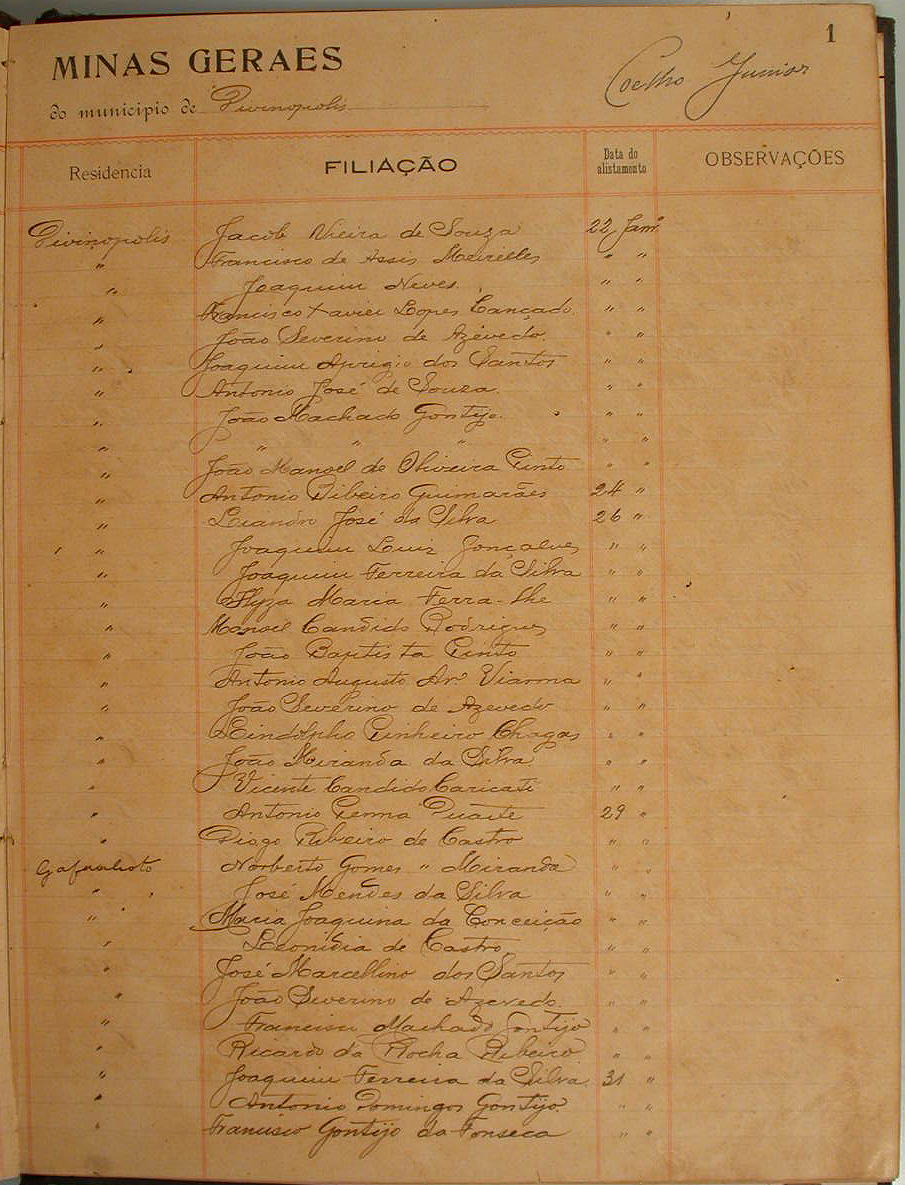 1
MINAS GERAES
Coelho Junior
do municipio de Divinopolis
Residencia FILIAÇÃO Data do alistamento OBSERVAÇÕES
Divinopolis Jacob Vieira de Souza 22 Janº
" Francisco de Assis Meirelles " "
" Joaquim Neves. " "
" Francisco Xavier Lopes Cançado " "
" João Severino de Azevedo. " "
" Joaquim Aprigio dos Santos " "
" Antonio José de Souza. " "
" João Machado Gontijo. " "
" " " " " "
" João Manoel de Oliveira Pinto " "
" Antonio Ribeiro Guimarães 24 "
" Leandro José da Silva 26 "
" Joaquim Luiz Gonçalves " "
" Joaquim Ferreira da Silva " "
" Maria " "
" Manoel Candido Rodrigues " "
" João Baptista Pinto " "
" Antonio Augusto Avº Vianna " "
" João Severino de Azevedo " "
" Lindolpho Pinheiro Chagas " "
" João Miranda da Silva " "
" Vicente Candido Caricati " "
" Antonio Penna Duarte 29 "
" Diogo Ribeiro de Castro " "
Gafanhoto Norberto Gomes " Miranda " "
" José Mendes da Silva " "
" Maria Joaquina da Conceição " "
" Leonidia de Castro " "
" José Marcellino dos Santos " "
" João Severino de Azevedo. " "
" Francisco Machado Gontijo " "
" Ricardo da Rocha Ribeiro " "
" Joaquim Ferreira da Silva 31 "
" Antonio Domingos Gontijo. " "
" Francisco Gontijo da Fonseca " "